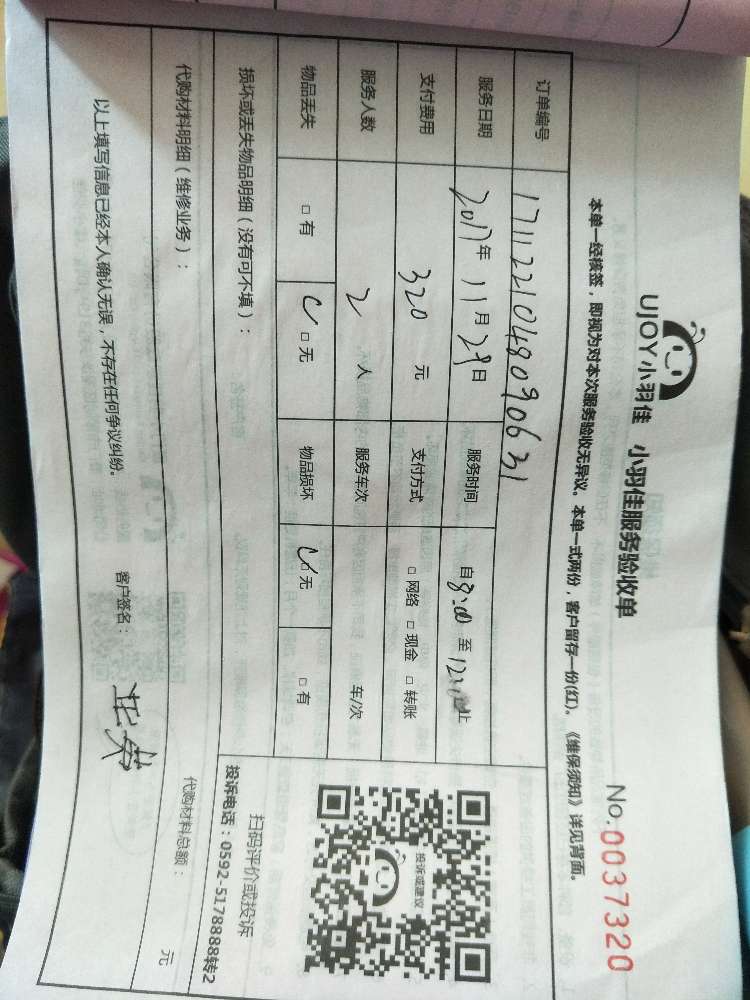 UJOY小羽佳 小羽佳服务验收单
No.0037320
本单一经核签，即视为对本次服务验收无异议。本单一式两份，客户留存一份(红)。《维保须知》详见背面。
订单编号 1711221048090631
服务日期 2017年 11月 29日 服务时间 自8:00 至 12:00止
支付费用 320 元 支付方式 □网络 □现金 □转账
服务人数 2 人 服务车次 车/次
物品丢失 □有 □无 物品损坏 □无 □有
损坏或丢失物品明细（没有可不填）：
投诉或建议
扫码评价或投诉
投诉电话：0592-5178888转2
代购材料明细（维修业务）： 代购材料总额： 元
以上填写信息已经本人确认无误，不存在任何争议纠纷。 客户签名：